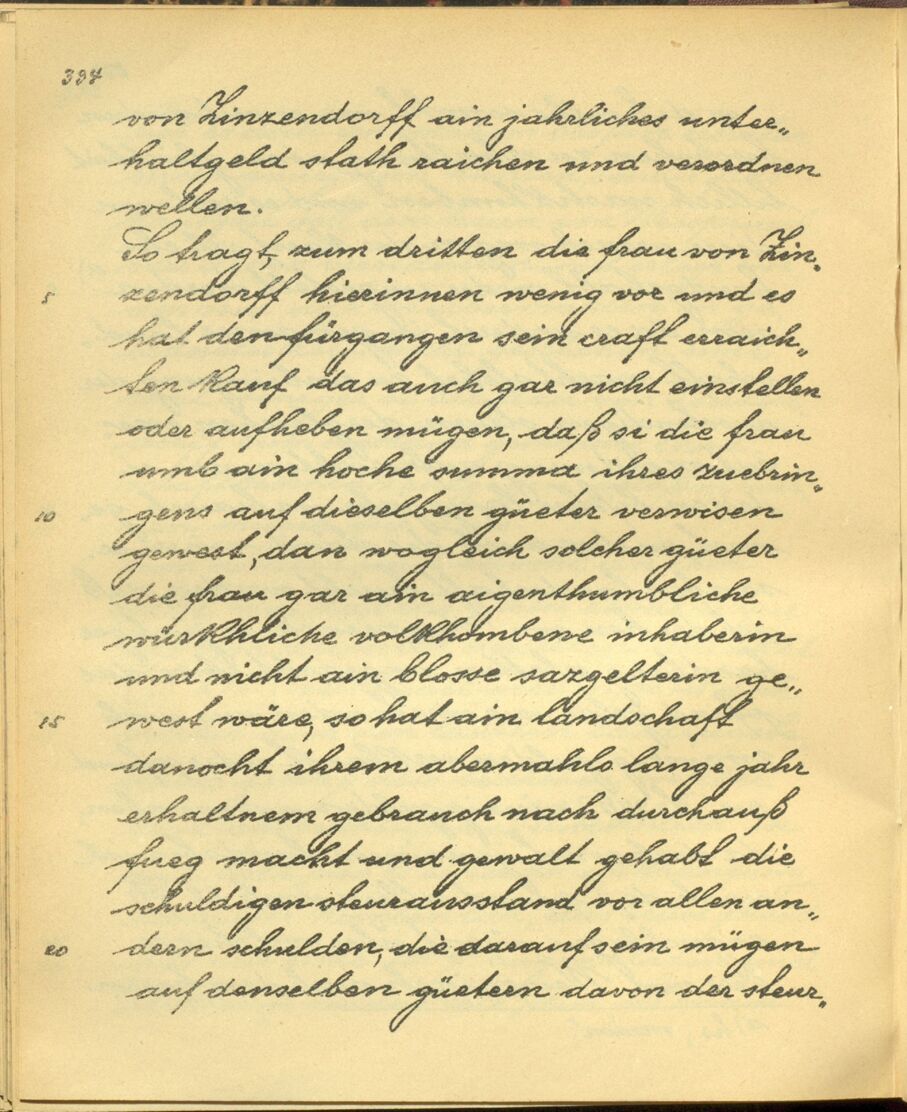 394
von Zinzendorff ain jahrliches unter„
haltgeld stath raichen und verordnen
wellen.
So tragt, zum dritten die frau von Zin„
5 zendorff hierinnen wenig vor und es
hat den fürgangen sein craft erraich„
ten Kauf das auch gar nicht einstellen
oder aufheben mügen, daß si die frau
umb ain hoche summa ihres zuebrin„
10 gens auf dieselben güeter verwisen
gewest, dan wogleich solcher güeter
die frau gar ain aigenthumbliche
würkhliche volkhombene inhaberin
und nicht ain blosse sazgelterin ge„
15 west wäre, so hat ain landschaft
danocht ihrem abermahls lange jahr
erhaltnem gebrauch nach durchauß
fueg macht und gewalt gehabt die
schuldigen steurausstand vor allen an„
20 dern schulden, die darauf sein mügen
auf denselben güetern davon der steur„